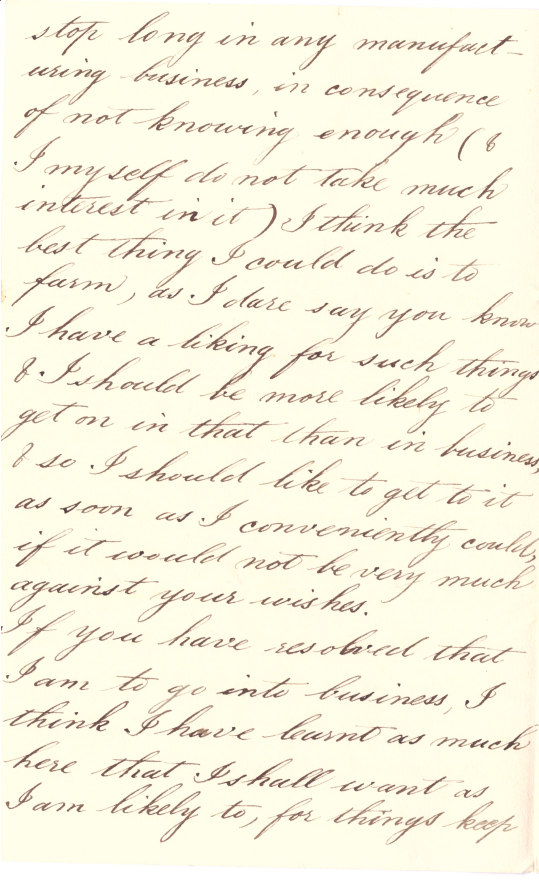 stop long in any manufact-
uring business, in consequence
of not knowing enough (&
I myself do not take much
interest in it) I think the
best thing I could do is to
farm, as I dare say you know
I have a liking for such things
& I should be more likely to
get on in that than in business,
& so I should like to get to it
as soon as I conveniently could,
if it would not be very much
against your wishes.
If you have resolved that
I am to go into business, I
think I have learnt as much
here that I shall want as
I am likely to, for things keep